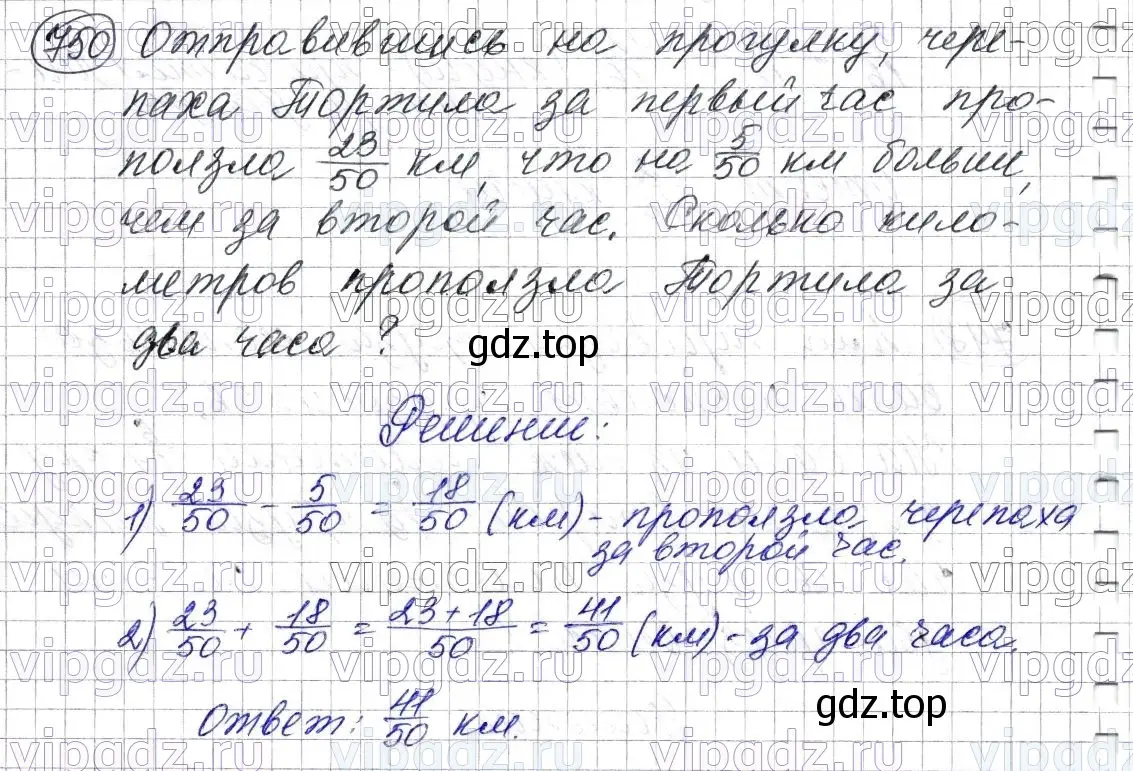 750 Отправившись на прогулку, чере-
паха Тортила за первый час про-
ползла 23/50 км, что на 5/50 км больше,
чем за второй час. Сколько кило-
метров проползла Тортила за
два часа?
gdz.top
Решение:
1) 23/50 - 5/50 = 18/50 (км) - проползла черепаха
за второй час.
2) 23/50 + 18/50 = 23+18/50 = 41/50 (км) - за два часа.
Ответ: 41/50 км.
gdz.top
vipgdz.ru